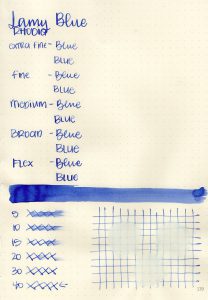 Lamy Blue
RHODIA
EXTRA FINE - Blue
BLUE
FINE - Blue
BLUE
MEDIUM - Blue
BLUE
BROAD - Blue
BLUE
FLEX - Blue
BLUE
5
10
15
20
30
40